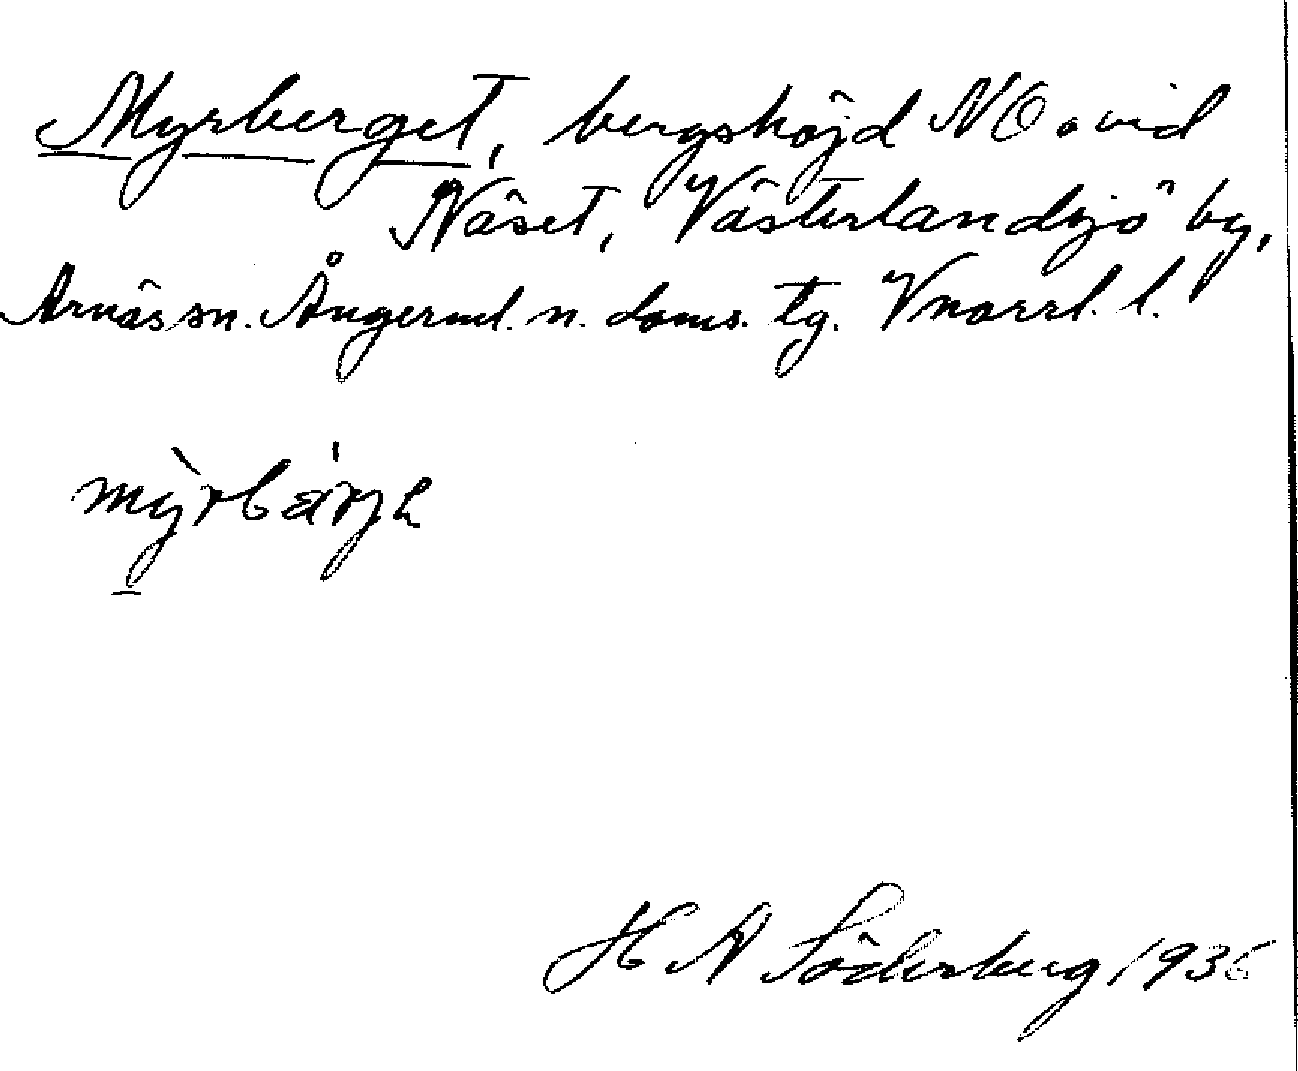 Myrberget, bergshöjd NO o vid
Näset, Västerlandsjö by,
Arnäs sn. Ångerml. n. doms. tg. Vnorrl. l.
mỳrbärje
H A Söderberg 1936